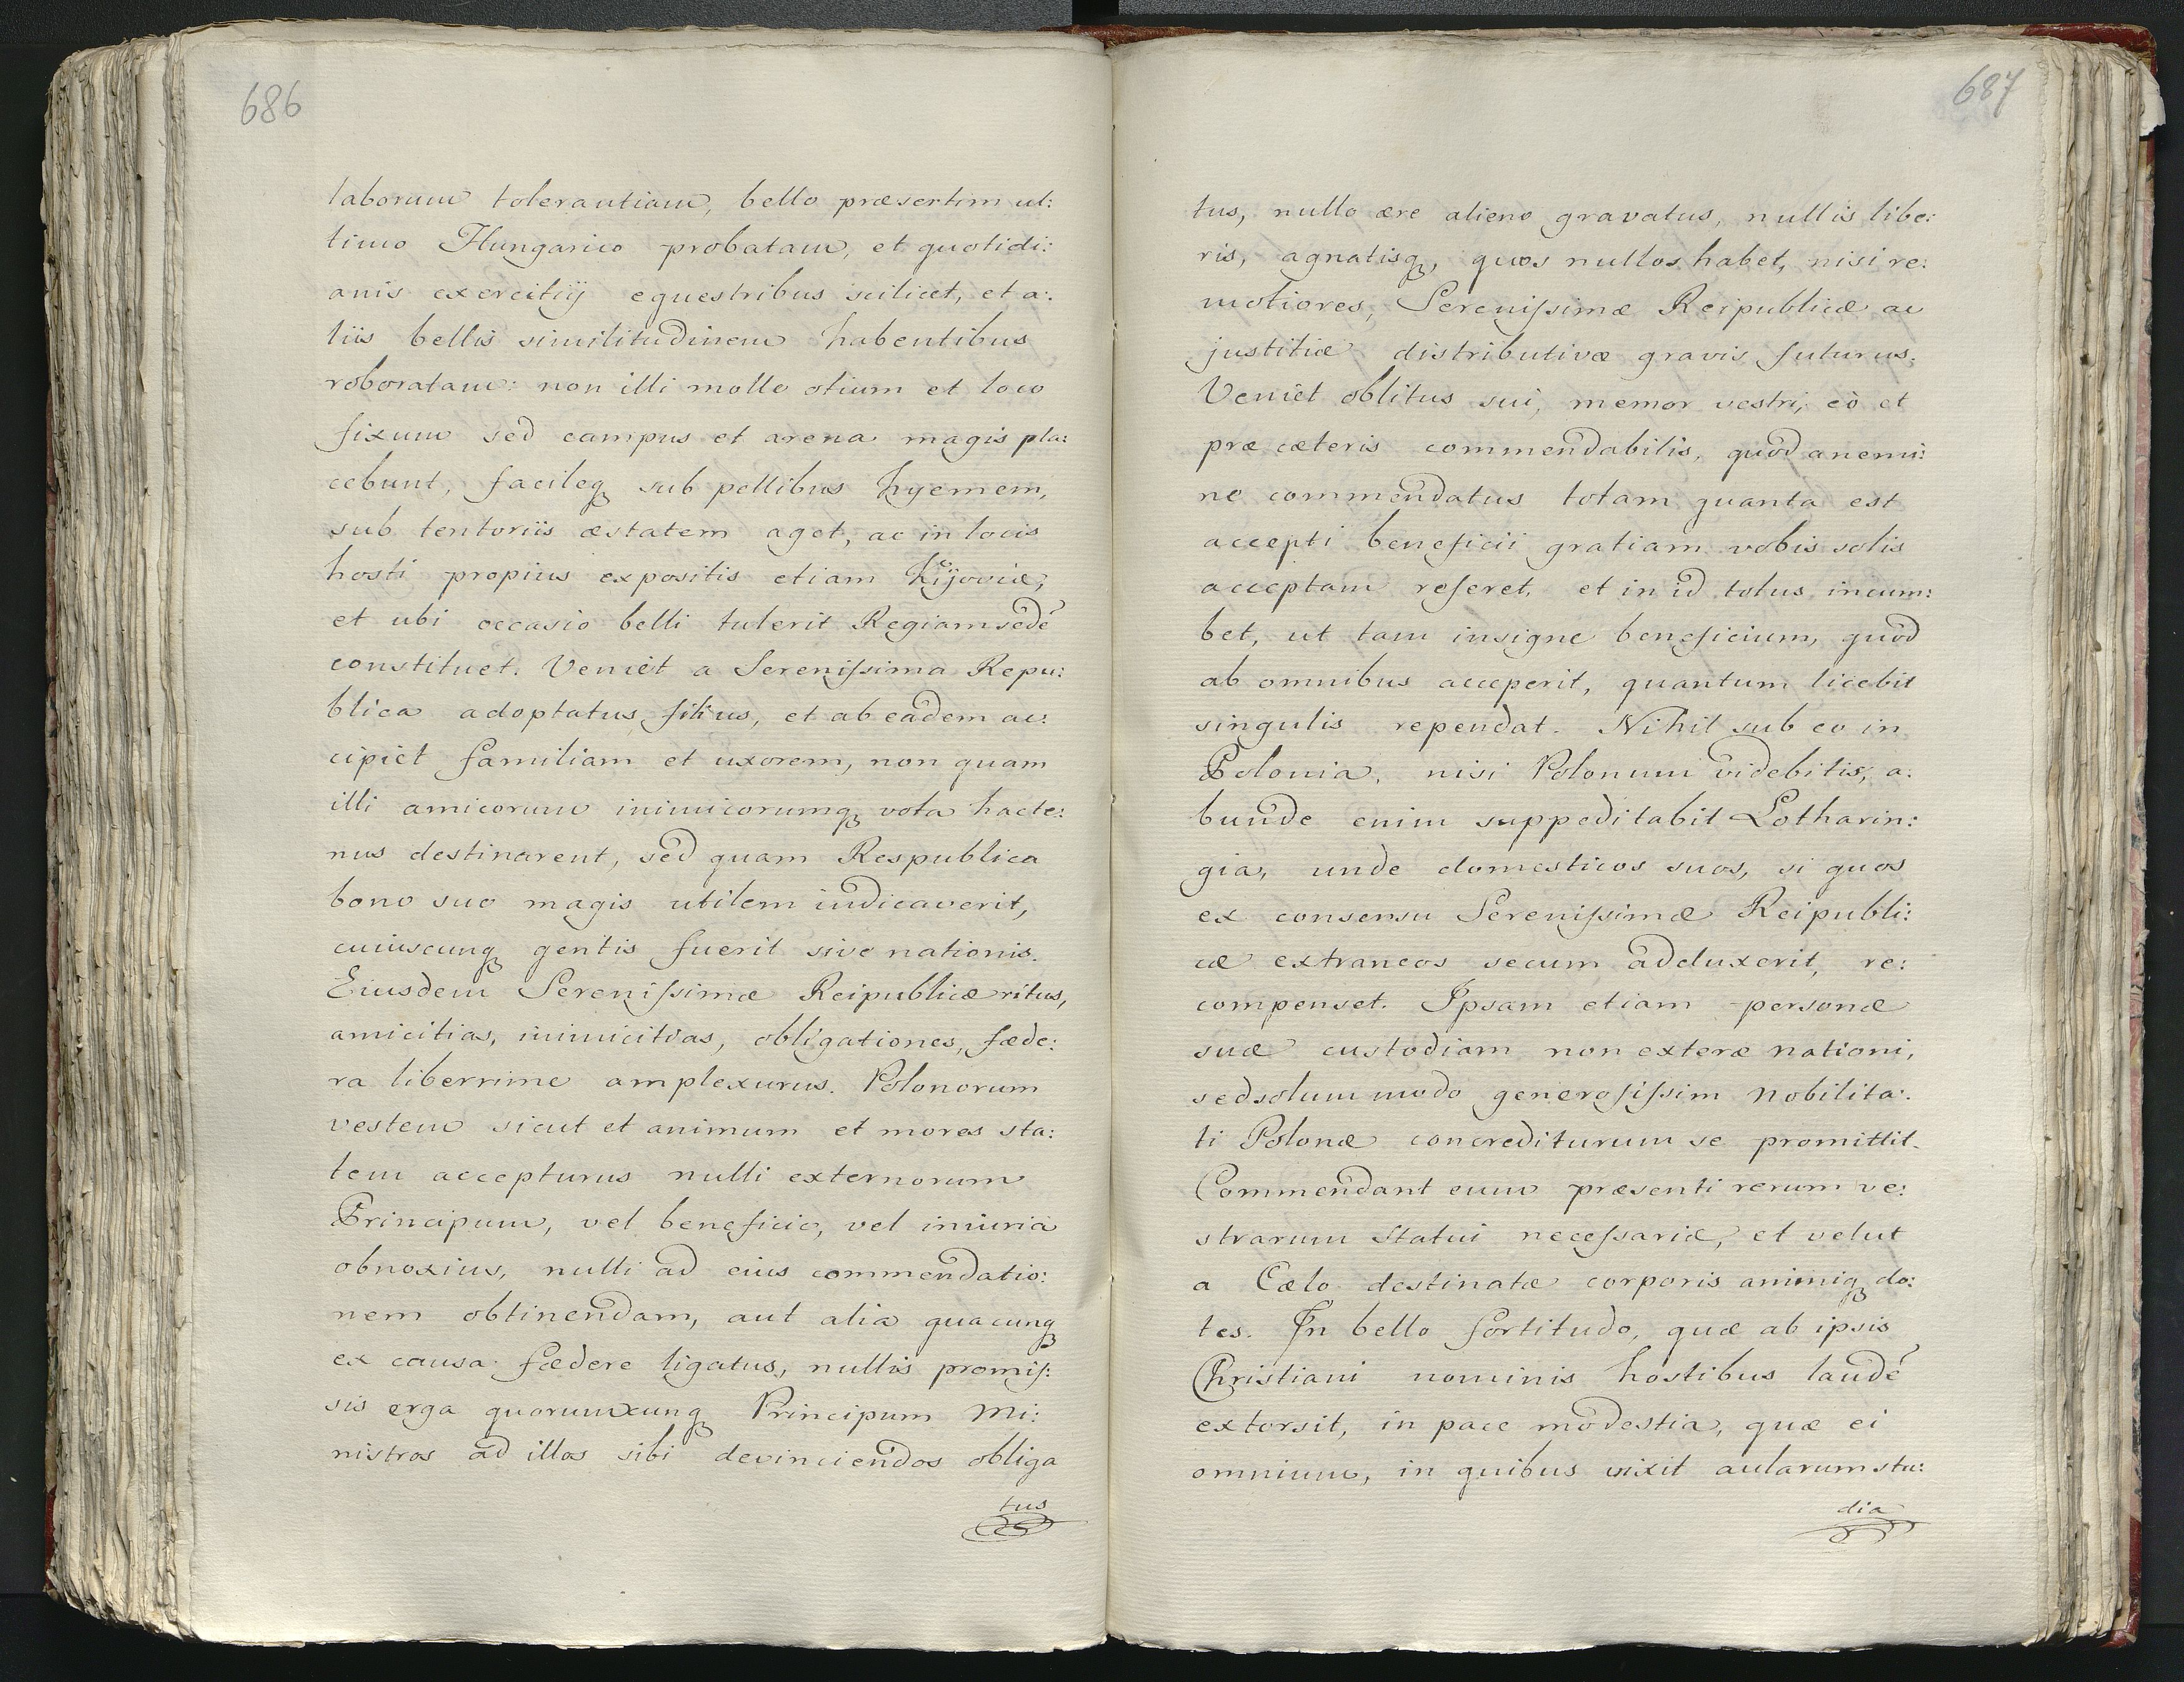 686
laborum tolerantiam, bello præsertim ul:
timo Hungarico probatam, et quotidi:
anis exercitij equestribus scilicet, et a:
liis bellis similitudinem habentibus
roboratam: non illi molle otium et loco
fixum sed campus et arena magis pla:
cebunt, facileq sub pellibus hyemem,
sub tentoriis æstatem aget, ac in locis
hosti propius expositis etiam Kijoviæ,
et ubi occasio belli tulerit Regiam sedé
constituet. Veniet a Serenissima Repu:
blica adoptatus filius, et ab eadem ac:
cipiet familiam et uxorem, non quam
illi amicorum inimicorumq vota hacte:
nus destinarent, sed quam Respublica
bono suo magis utilem iudicaverit,
cuiuscunq gentis fuerit sive nationis.
Eiusdem Serenissimæ Reipublicæ ritus,
amicitias, inimicitias, obligationes, fœde:
ra liberrime amplexurus. Polonorum
vestem sicut et animum et mores sta:
tem accepturus nulli externorum
Principum, vel beneficio, vel iniuria
obnoxius, nulli ad eius commendatio:
nem obtinendam, aut alia quacunq
ex causa fœdere ligatus, nullis promis:
sis erga quorumcunq Principum Mi:
nistros ad illos sibi devinciendos obliga
tus
687
tus, nullo ære alieno gravatus, nullis libe:
ris, agnatisq, quos nullos habet, nisi re:
motiores, Serenissimæ Reipublicæ ac
justitiæ distributivæ gravis futurus.
Veniet oblitus sui, memor vestri, eò et
præ cæteris commendabilis, quòd a nemi:
ne commendatus totam quanta est
accepti beneficii gratiam vobis solis
acceptam referet, et in id totus incum:
bet, ut tam insigne beneficium, quod
ab omnibus acceperit, quantum licebit
singulis rependat. Nihil sub eo in
Polonia, nisi Polonum videbitis, a:
bunde enim suppeditabit Lotharin:
gia, unde domesticos suos, si quos
ex consensu Serenissimæ Reipubli:
cæ extraneos secum adduxerit, re:
compenset. Ipsam etiam personæ
suæ custodiam non exteræ nationi,
sed solummodo generosissim Nobilita:
ti Polonæ concrediturum se promittit.
Commendant eum præsenti rerum ve:
strarum statui necessariæ, et velut
a Cælo destinatæ corporis animiq do:
tes. In bello fortitudo, quæ ab ipsis
Christiani nominis hostibus laudé
extorsit, in pace modestia, quæ ei
omnium, in quibus vixit aularum stu:
dia